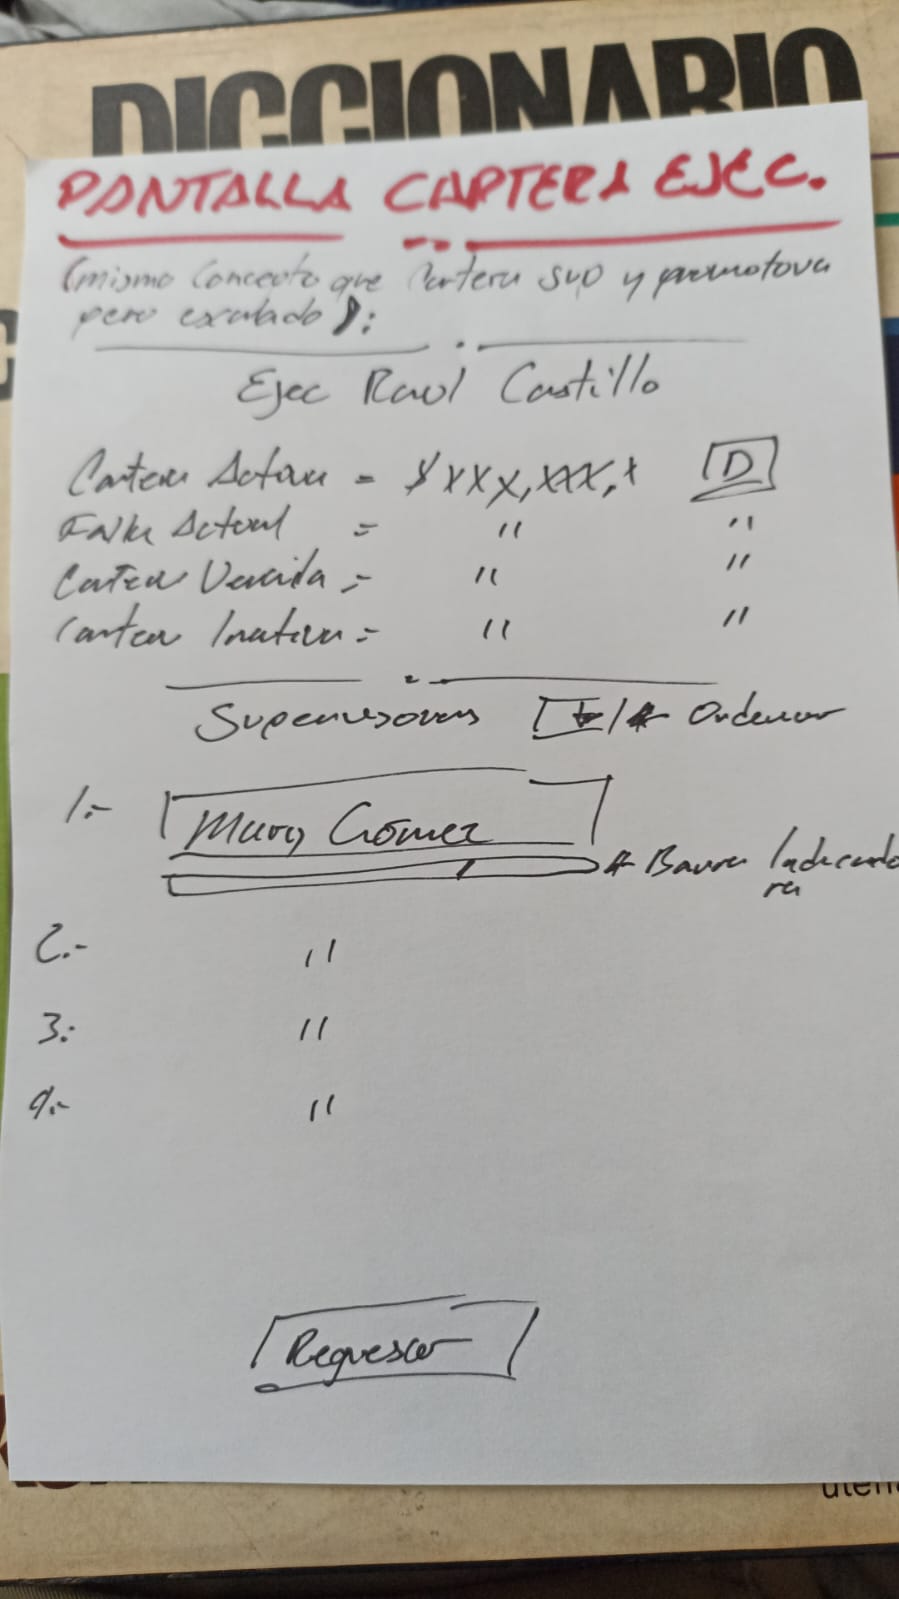 DICCIONARIO
PANTALLA CARTERA EJEC.
(mismo concepto que Cartera sup y promotora
pero escalado):
Ejec Raul Castillo
Cartera Activa = $ xxx,xxx,x [D]
Falla Actual = " "
Cartera Vencida = " "
Cartera Inativa = " "
Supervisoras Ordenar
1.- Mary Gómez
Barra Indicado
ra
2.- "
3.- "
4.- "
Regresar